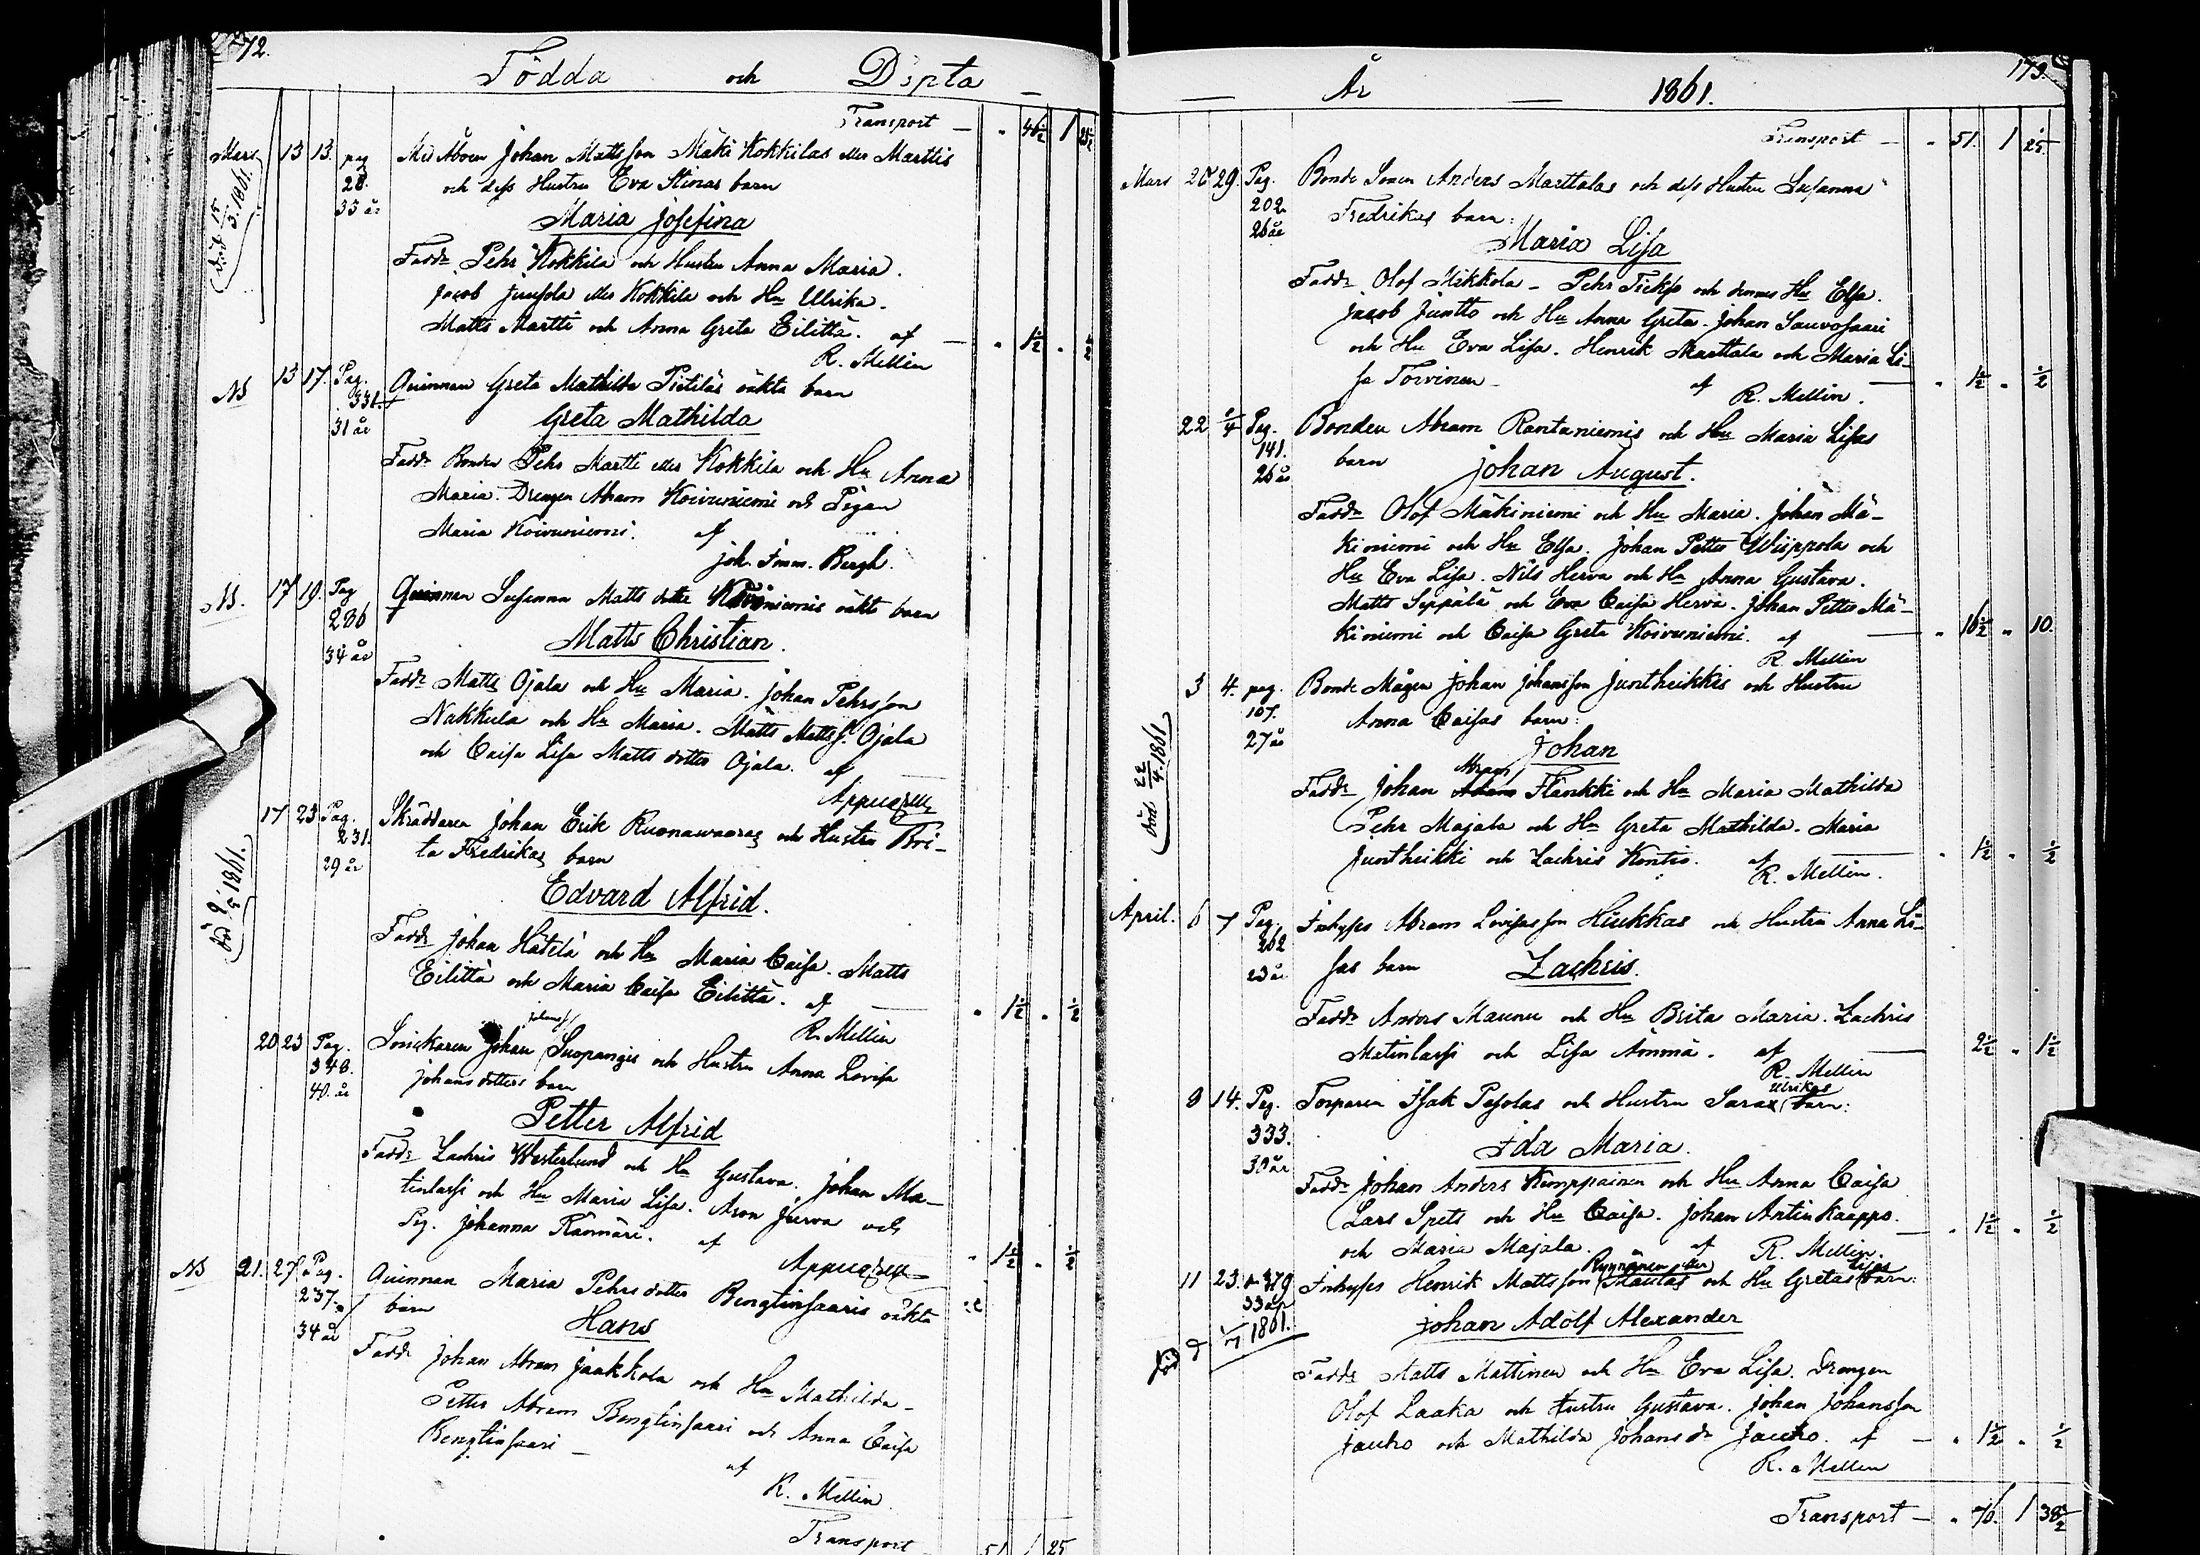 172.
Födda och Döpta
Transport — " 46½ 1 25½
Mars 13 13. pag Med Åboen Johan Mattsson Mäki Kokkilas eller Marttis
28. och dess Hustru Eva Stinas barn
33 år Maria Josefina
död 15/3. 1861.
Fadd: Pehr Kokkila och Hustru Anna Maria.
Jacob Juusola eller Kokkila och Hu Ulrika.
Matts Martti och Anna Greta Eilittä. af — " 1½ " ½
R. Mellin
NB 13 17. Pag. Quinnan Greta Mathilda Pietiläs oäkta barn
331.
31 år Greta Mathilda
Fadd: Bonden Pehr Martti eller Kokkila och Hu Anna
Maria. Drengen Abram Koivuniemi och Pigan
Maria Koivuniemi. af
Joh. Imm. Bergh.
NB. 17 19. Pag Quinnan Susanna Matts dotter Koivuniemis oäkt barn
286
34 år Matts Christian.
Fadd: Matts Ojala och Hu Maria. Johan Pehrsson
Nakkula och Hu Maria. Matts Mattss. Ojala
och Caisa Lisa Matts dotter Ojala. af
Appelgren
17 23 Pag. Skräddaren Johan Erik Ruonawaaras och Hustru Bri-
231. ta Fredrikas barn
29 år Edvard Alfrid.
död 9/5 1861.
Fadd: Johan Hätilä och Hu Maria Caisa. Matts
Eilittä och Maria Caisa Eilittä. af — " 1½ " ½
R. Mellin
20 23 Pag. Snickaren Johan Johanss. Suopangis och Hustru Anna Lovisa
348. Johans dotters barn
40. år Petter Alfrid
Fadd: Zachris Westerlund och Hu Gustava. Johan Ma-
tinlassi och Hu Maria Lisa. Aron Jurva och
Pig. Johanna Rannäri. af " 1½ " ½
Appelgren
NB 21. 27. Pag. Quinnan Maria Pehrs dotter Bengtinsaaris oäkta
237. barn
34 år Hans
Fadd: Johan Abram Jaakkola och Hu Mathilda –
Petter Abram Bengtinsaari och Anna Caisa
Bengtinsaari –
af
R. Mellin
Transport 51 1 25
173.
— År — 1861.
Transport — " 51. 1 25.
Mars 26 29. Pag. Bonde Sonen Anders Marttalas och dess Hustru Susanna
202 Fredrikas barn:
26 år Maria Lisa
Fadd: Olof Mikkola – Pehr Fickss och dennes Hu Elsa.
Jacob Juntto och Hu Anna Greta. Johan Sauvosaari
och Hu Eva Lisa. Henrik Marttala och Maria Li-
sa Torvinen – af — " 1½ " ½
R. Mellin.
22 1/4 Pag. Bonden Abram Rantaniemis och Hu Maria Lisas
141. barn Johan August.
26 år
Fadd: Olof Mäkiniemi och Hu Maria. Johan Mä-
kiniemi och Hu Elsa. Johan Petter Wiippola och
Hu Eva Lisa. Nils Herva och Hu Anna Gustava.
Matts Seppälä och Eva Caisa Herva. Johan Petter Mä-
kiniemi och Caisa Greta Koivuniemi. af — " 16½ " 10.
R. Mellin
3 4. pag. Bonde Mågen Johan Johansson Juntheikkis och Hustru
107. Anna Caisas barn:
27 år Johan
död 22/4. 1861
Fadd: Johan Abram Flänkki och Hu Maria Mathilda
Pehr Majala och Hu Greta Mathilda. Maria
Juntheikki och Zachris Kontio. af — " 1½ " ½
R. Mellin.
April. 6 7 Pag. Inhyses Abram Lovisasson Hiukkas och Hustru Anna Li-
262 sas barn Zachris.
23 år
Fadd: Anders Maunu och Hu Brita Maria. Zachris
Matinlassi och Lisa Ämmä. af — 2½ " 1½
R. Mellin
8 14. Pag. Torparen Isak Pasolas och Hustru Sara Ulrikas barn:
333. Ida Maria.
30 år
Fadd: Johan Anders Kumppainen och Hu Anna Caisa
Lars Spets och Hu Caisa. Johan Antinkaappo.
och Maria Majala. af R. Mellin. — " 1½ " ½
11 23. p. 379 Inhyses Henrik Mattsson Rynnänen eller Mäntäs och Hu Gretas Lisas barn:
33 år Johan Adolf Alexander
död 1/7 1861.
Fadd: Matts Mattinen och Hu Eva Lisa. Drengen
Olof Laaka och Hustru Gustava. Johan Johansson
Jauho och Mathilda Johans dr Jauho. af — " 1½ " ½
R. Mellin
Transport — " 76. 1 38½